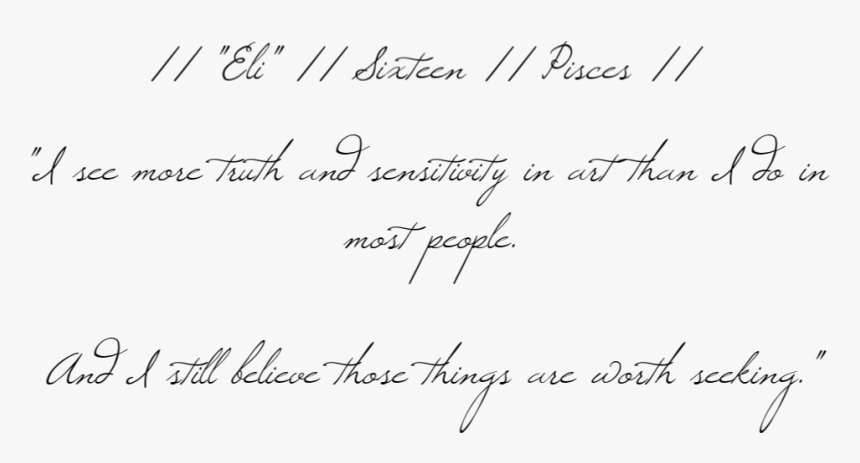 // "Eli" // Sixteen // Pisces //
"I see more truth and sensitivity in art than I do in
most people.
And I still believe those things are worth seeking."